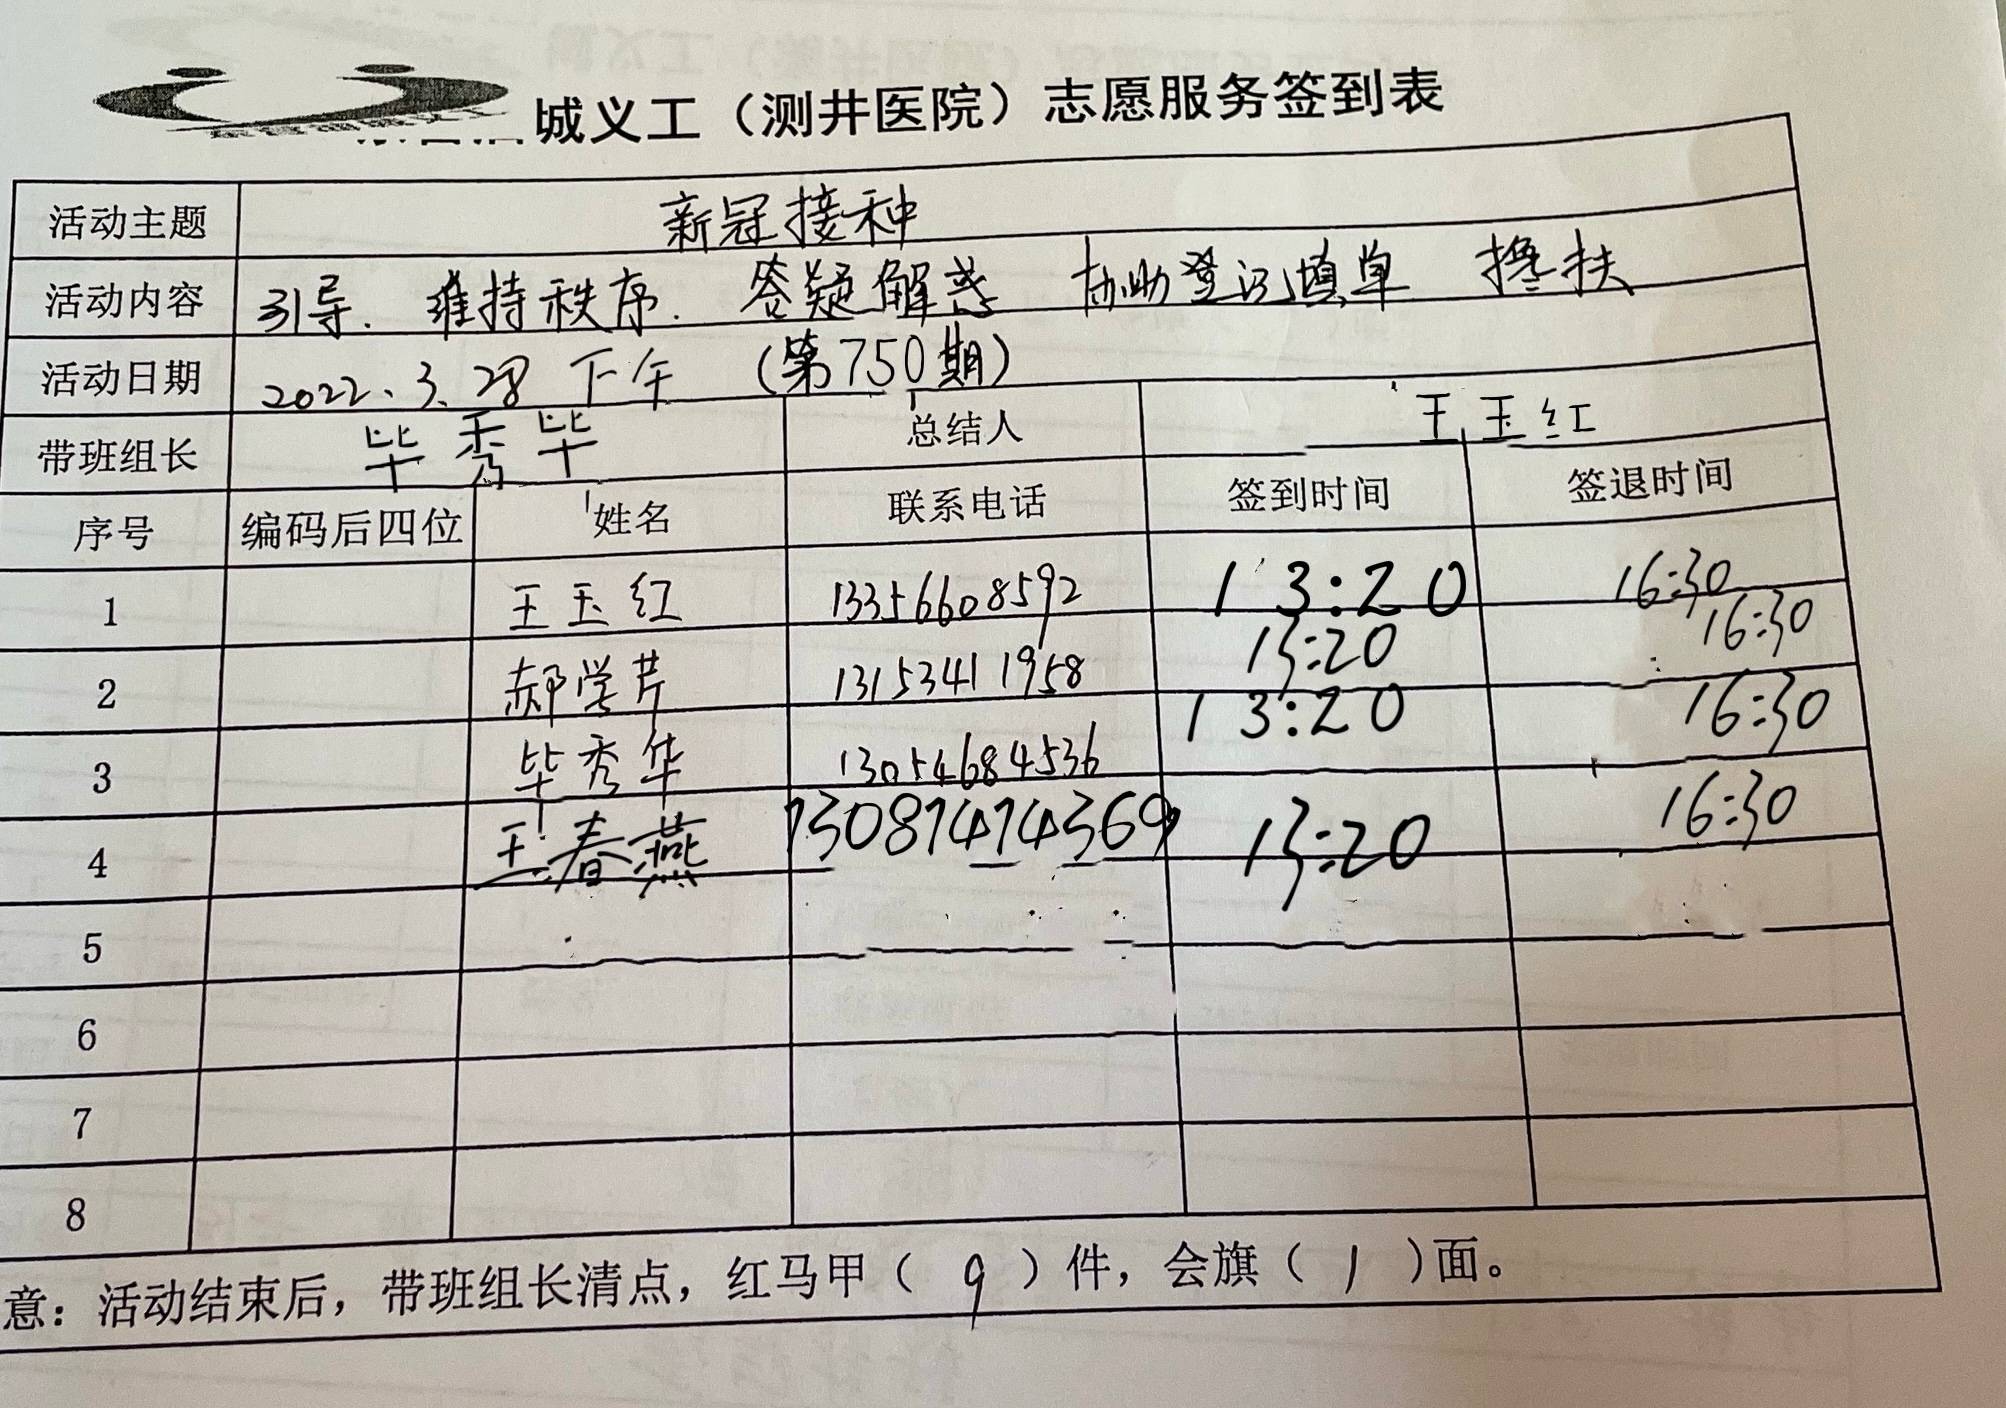 城义工（测井医院）志愿服务签到表
活动主题 新冠接种
活动内容 引导. 维持秩序. 答疑解惑 协助登记填单 搀扶
活动日期 2022.3.28 下午 (第750期)
带班组长 毕秀毕 总结人 王玉红
序号 编码后四位 姓名 联系电话 签到时间 签退时间
1 王玉红 13356608592 13:20 16:30
2 郝学芹 13153411958 13:20 16:30
3 毕秀华 13054684536 13:20 16:30
4 王春燕 13087474369 13:20 16:30
5
6
7
8
意：活动结束后，带班组长清点，红马甲（ 9 ）件，会旗（ 1 ）面。